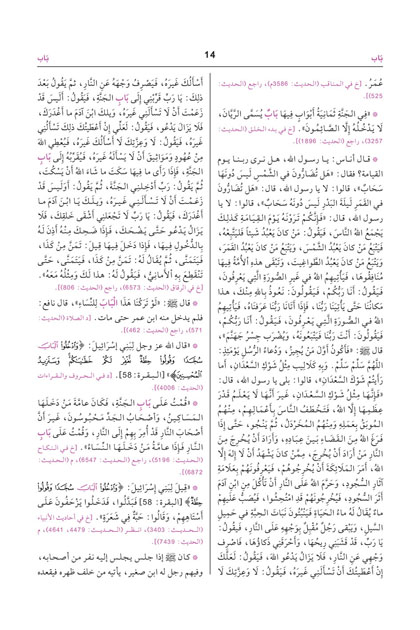 بَاب
14
بَاب
عُمَرُ. [خ في المناقب (الحديث: 3586م)، راجع (الحديث:
525)].
* «فِي الجَنَّةِ ثَمَانِيَةُ أَبْوَابٍ فِيهَا بَابٌ يُسَمَّى الرَّيَّانَ،
لَا يَدْخُلُهُ إِلَّا الصَّائِمُونَ». [خ في بدء الخلق (الحديث:
3257)، راجع (الحديث: 1896)].
* قال أناس: يا رسول الله، هل نرى ربنا يوم
القيامة؟ فقال: «هَل تُضَارُّونَ فِي الشَّمْسِ لَيسَ دُونَهَا
سَحَابٌ»، قالوا: لا يا رسول الله، قال: «هَل تُضَارُّونَ
فِي القَمَرِ لَيلَةَ البَدْرِ لَيسَ دُونَهُ سَحَابٌ»، قالوا: لا يا
رسول الله، قال: «فَإِنَّكُمْ تَرَوْنَهُ يَوْمَ القِيَامَةِ كَذلِكَ
يَجْمَعُ اللهُ النَّاسَ، فَيَقُولُ: مَنْ كانَ يَعْبُدُ شَيئاً فَليَتَّبِعْهُ،
فَيَتْبَعُ مَنْ كانَ يَعْبُدُ الشَّمْسَ، وَيَتْبَعُ مَنْ كانَ يَعْبُدُ القَمَرَ،
وَيَتْبَعُ مَنْ كانَ يَعْبُدُ الطَّوَاغِيتَ، وَتَبْقَى هذهِ الأُمَّةُ فِيهَا
مُنَافِقُوهَا، فَيَأْتِيهِمُ اللهُ فِي غَيرِ الصُّورَةِ الَّتِي يَعْرِفُونَ،
فَيَقُولُ: أَنَا رَبُّكُمْ، فَيَقُولُونَ: نَعُوذُ بِاللهِ مِنْكَ، هذا
مَكانُنَا حَتَّى يَأْتِيَنَا رَبُّنَا، فَإِذَا أَتَانَا رَبُّنَا عَرَفنَاهُ، فَيَأْتِيهِمُ
اللهُ فِي الصُّورَةِ الَّتِي يَعْرِفُونَ، فَيَقُولُ: أَنَا رَبُّكُمْ،
فَيَقُولُونَ: أَنْتَ رَبُّنَا فَيَتْبَعُونَهُ، وَيُضْرَب جِسْرُ جَهَنَّمَ»،
قال ﷺ: «فَأَكُونُ أَوَّلَ مَنْ يُجِيزُ، وَدُعاءُ الرُّسُلِ يَوْمَئِذٍ:
اللَّهُمَّ سَلِّمْ سَلِّمْ. وَبِهِ كَلَالِيبُ مِثْلُ شَوْكِ السَّعْدَانِ، أَما
رَأَيتُمْ شَوْكَ السَّعْدَانِ»، قالوا: بلى يا رسول الله، قال:
«فَإِنَّهَا مِثْلُ شَوْكِ السَّعْدَانِ، غَيرَ أَنَّهَا لَا يَعْلَمُ قَدْرَ
عِظَمِهَا إِلَّا اللهُ، فَتَخْطَفُ النَّاسَ بِأَعْمَالِهِمْ، مِنْهُمُ
المُوبَقُ بِعَمَلِهِ وَمِنْهُمُ المُخَرْدَلُ، ثُمَّ يَنْجُو، حَتَّى إِذَا
فَرَغَ اللهُ مِنَ القَضَاءِ بَينَ عِبَادِهِ، وَأَرَادَ أَنْ يُخْرِجَ مِنَ
النَّارِ مَنْ أَرَادَ أَنْ يُخْرِجَ، مِمَّنْ كانَ يَشْهَدُ أَنْ لَا إِلهَ إِلَّا
اللهُ، أَمَرَ المَلَائِكَةَ أَنْ يُخْرِجُوهُمْ، فَيَعْرِفُونَهُمْ بِعَلَامَةِ
آثَارِ السُّجُودِ، وَحَرَّمَ اللهُ عَلَى النَّارِ أَنْ تَأْكُلَ مِنِ ابْنِ آدَمَ
أَثَرَ السُّجُودِ، فَيُخْرِجُونَهُمْ قَدِ امْتُحِشُوا، فَيُصَبُّ عَلَيهِمْ
ماءٌ يُقَالُ لَهُ ماءُ الحَيَاةِ فَيَنْبُتُونَ نَبَاتَ الحِبَّةِ فِي حَمِيلِ
السَّيلِ، وَيَبْقى رَجُلٌ مُقْبِلٌ بِوَجْهِهِ عَلَى النَّارِ، فَيَقُولُ:
يَا رَبِّ، قَدْ قَشَبَنِي رِيحُهَا، وَأَحْرَقَنِي ذَكاؤُهَا، فَاصْرِف
وَجْهِي عَنِ النَّارِ، فَلَا يَزَالُ يَدْعُو اللهَ، فَيَقُولُ: لَعَلَّكَ
إِنْ أَعْطَيتُكَ أَنْ تَسْأَلَنِي غَيرَهُ، فَيَقُولُ: لَا وَعِزَّتِكَ لَا
أَسْأَلُكَ غَيرَهُ، فَيَصْرِفُ وَجْهَهُ عَنِ النَّارِ، ثُمَّ يَقُولُ بَعْدَ
ذلِكَ: يَا رَبِّ قَرِّبْنِي إِلَى بَابِ الجَنَّةِ، فَيَقُولُ: أَلَيسَ قَدْ
زَعَمْتَ أَنْ لَا تَسْأَلَنِي غَيرَهُ، وَيلَكَ ابْنَ آدَمَ ما أَغْدَرَكَ،
فَلَا يَزَالُ يَدْعُو، فَيَقُولُ: لَعَلِّي إِنْ أَعْطَيتُكَ ذلِكَ تَسْأَلُنِي
غَيرَهُ، فَيَقُولُ: لَا وَعِزَّتِكَ لَا أَسْأَلُكَ غَيرَهُ، فَيُعْطِي اللهَ
مِنْ عُهُودٍ وَمَوَاثِيقَ أَنْ لَا يَسْأَلَهُ غَيرَهُ، فَيُقَرِّبُهُ إِلَى بَابِ
الجَنَّةِ، فَإِذَا رَأَى ما فِيهَا سَكَتَ ما شَاءَ اللهُ أَنْ يَسْكُتَ،
ثُمَّ يَقُولُ: رَبِّ أَدْخِلنِي الجَنَّةَ، ثُمَّ يَقُولُ: أَوَلَيسَ قَدْ
زَعَمْتَ أَنْ لَا تَسْأَلَنِي غَيرَهُ، وَيلَكَ يَا ابْنَ آدَمَ ما
أَغْدَرَكَ، فَيَقُولُ: يَا رَبِّ لَا تَجْعَلنِي أَشْقى خَلقِكَ، فَلَا
يَزَالُ يَدْعُو حَتَّى يَضْحَكَ، فَإِذَا ضَحِكَ مِنْهُ أَذِنَ لَهُ
بِالدُّخُولِ فِيهَا، فَإِذَا دَخَلَ فِيهَا قِيلَ: تَمَنَّ مِنْ كَذَا،
فَيَتَمَنَّى، ثُمَّ يُقَالُ لَهُ: تَمَنَّ مِنْ كَذَا، فَيَتَمَنَّى، حَتَّى
تَنْقَطِعَ بِهِ الأَمانِيُّ، فَيَقُولُ لَهُ: هذا لَكَ وَمِثْلُهُ مَعَهُ».
[خ في الرقاق (الحديث: 6573)، راجع (الحديث: 806)].
* قال ﷺ: «لَوْ تَرَكْنَا هَذَا الْبَابَ لِلنِّسَاءِ»، قال نافع:
فلم يدخل منه ابن عمر حتى مات. [د الصلاة (الحديث:
571)، راجع (الحديث: 462)].
* «قال الله عز وجل لِبَنِي إِسْرَائِيلَ: ﴿وَادْخُلُوا الْبَابَ
سُجَّدًا وَقُولُوا حِطَّةٌ نَّغْفِرْ لَكُمْ خَطَايَاكُمْ وَسَنَزِيدُ
الْمُحْسِنِينَ﴾» [البقرة: 58]. [د في الحروف والقراءات
(الحديث: 4006)].
* «قُمْتُ عَلَى بَابِ الجَنَّةِ، فَكانَ عامَّةُ مَنْ دَخَلَهَا
المَسَاكِينُ، وَأَصْحَابُ الجَدِّ مَحْبُوسُونَ، غَيرَ أَنَّ
أَصْحَابَ النَّارِ قَدْ أُمِرَ بِهِمْ إِلَى النَّارِ، وَقُمْتُ عَلَى بَابِ
النَّارِ فَإِذَا عامَّةُ مَنْ دَخَلَهَا النِّسَاءُ». [خ في النكاح
(الحديث: 5196)، راجع (الحديث: 6547)، م (الحديث:
6872)].
* «قِيلَ لِبَنِي إِسْرَائِيلَ: ﴿وَادْخُلُوا الْبَابَ سُجَّدًا وَقُولُوا
حِطَّةٌ﴾ [البقرة: 58] فَبَدَّلُوا، فَدَخَلُوا يَزْحَفُونَ عَلَى
أَسْتَاهِهِمْ، وَقَالُوا: حَبَّةٌ فِي شَعْرَةٍ». [خ في أحاديث الأنبياء
(الحديث: 3403)، انظر (الحديث: 4479، 4641)، م
(الحديث: 7439)].
* كان ﷺ إذا جلس يجلس إليه نفر من أصحابه،
وفيهم رجل له ابن صغير، يأتيه من خلف ظهره فيقعده